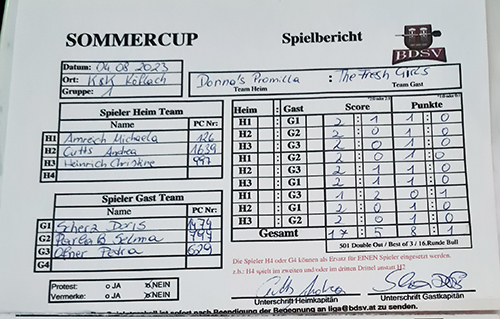 SOMMERCUP
Spielbericht
BDSV
Datum: 04 08 2023
Ort: K&K Köflach
Gruppe: 1
Donna's Promilla : The Fresh Girls
Team Heim Team Gast
Spieler Heim Team
Name PC Nr:
H1 Amreich Michaela 126
H2 Cutts Andrea 1639
H3 Heinrich Christine 997
H4
Spieler Gast Team
Name PC Nr:
G1 Scherz Doris 1474
G2 Selma 799
G3 Ofner Petra 629
G4
Heim : Gast Score Punkte
H1 : G1 2 : 1 1 : 0
H2 : G2 2 : 0 1 : 0
H3 : G3 2 : 0 1 : 0
H1 : G2 2 : 0 1 : 0
H2 : G3 2 : 1 1 : 0
H3 : G1 2 : 1 1 : 0
H1 : G3 1 : 2 0 : 1
H2 : G1 2 : 0 1 : 0
H3 : G2 2 : 0 1 : 0
Gesamt 17 : 5 8 : 1
501 Double Out / Best of 3 / 16.Runde Bull
Die Spieler H4 oder G4 können als Ersatz für EINEN Spieler eingesetzt werden.
z.b.: H4 spielt im zweiten und oder im dritten Drittel anstatt H2
Protest: o JA o NEIN
Vermerke: o JA o NEIN
Cutts Andrea
Unterschrift Heimkapitän Unterschrift Gastkapitän
Der Spielbericht ist sofort nach Beendigung der Begegnung an liga@bdsv.at zu senden!